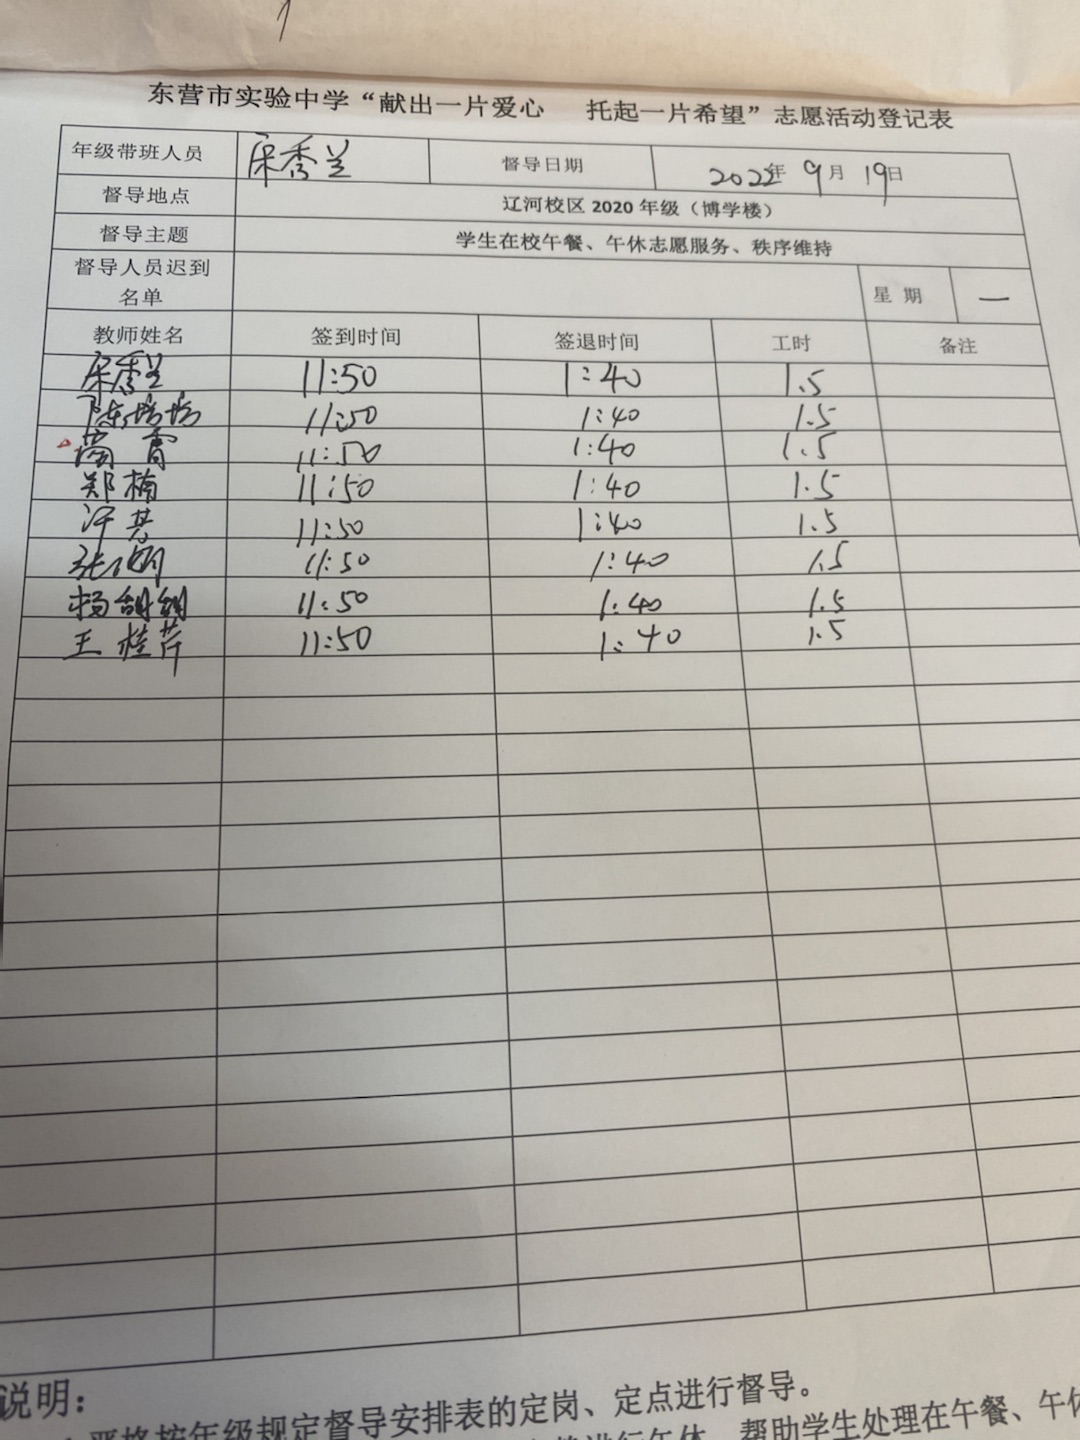 东营市实验中学“献出一片爱心 托起一片希望”志愿活动登记表
年级带班人员 宋秀兰 督导日期 2022年 9月 19日
督导地点 辽河校区 2020 年级（博学楼）
督导主题 学生在校午餐、午休志愿服务、秩序维持
督导人员迟到名单 星 期 一
教师姓名 签到时间 签退时间 工时 备注
宋秀兰 11:50 1:40 1.5
陈培培 11:50 1:40 1.5
雷 11:50 1:40 1.5
郑楠 11:50 1:40 1.5
11:50 1:40 1.5
张 11:50 1:40 1.5
杨翩翩 11:50 1:40 1.5
王桂芹 11:50 1:40 1.5
说明：
严格按年级规定督导安排表的定岗、定点进行督导。
进行午休，帮助学生处理在午餐、午休